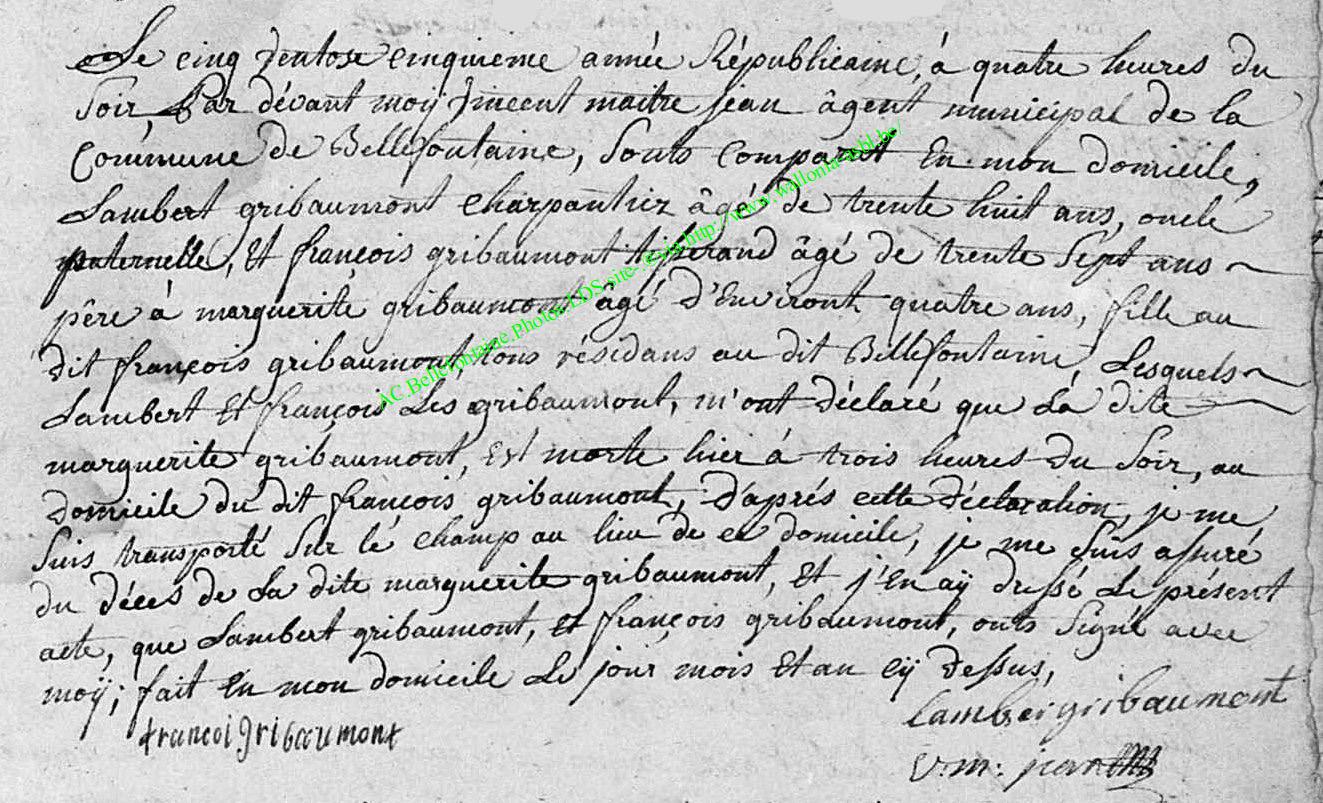 Le cinq ventose cinquieme année Républicaine, á quatre heures du
Soir, Par dévant moÿ vincent maitre jean âgent municipal de la
Commune de Bellefontaine, Sonts comparut En mon domicile,
Lambert gribaumont charpantiez âgé de trente huit ans, oncle
paternelle, Et françois gribaumont tisserand âgé de trente Sept ans
pêre á marguerite gribaumont âgé d'Environt quatre ans, fille au
dit françois gribaumont, tous résidans au dit Bellefontaine, Lesquels
Lambert Et françois Les gribaumont, m'ont déclaré que La dite
marguerite gribaumont, Est morte hier á trois heures du Soir, au
domicile du dit françois gribaumont, d'aprés cette déclaration, je me
Suis transporté Sur le champ au lieu de ce domicile, je me Suis assuré
du déces de La dite marguerite gribaumont, Et j'En aÿ dressé Le présent
acte, que Lambert gribaumont, Et françois gribaumont, onts Signé avec
moÿ; fait En mon domicile Le jour mois Et an cÿ dessus,
Lambert gribaumont
francoi gribaumont
v. m. jean
AC.Bellefontaine.Photos.LDS.site- http://www.wallonia-asbl.be/